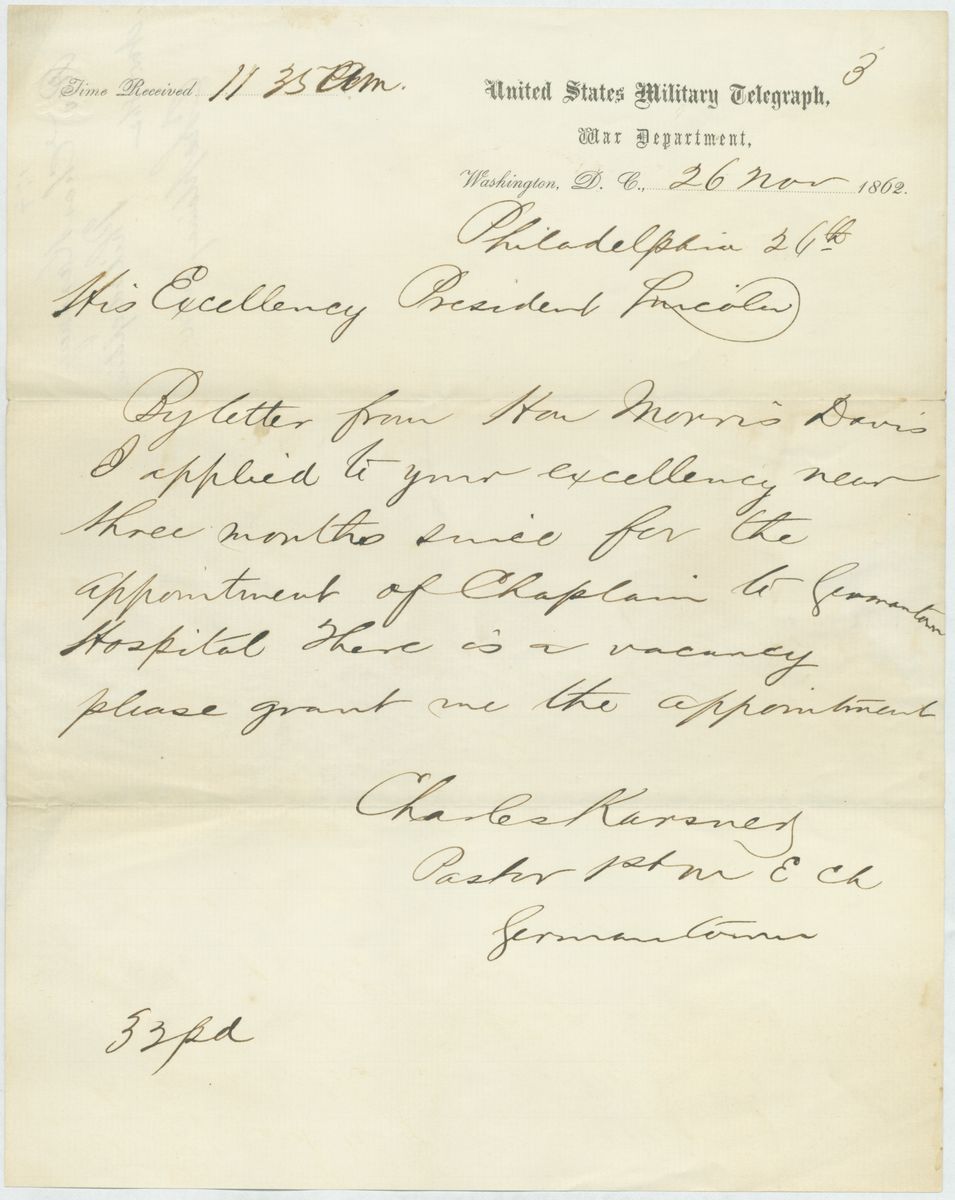 3
Time Received 11 35 Am.
United States Military Telegraph,
War Department,
Washington, D. C., 26 Nov 1862.
Philadelphia 26th
His Excellency President Lincoln
By letter from Hon Morris Davis
I applied to your excellency near
three months since for the
appointment of Chaplain to Germantown
Hospital There is a vacancy
please grant me the appointment
Charles Karsner
Pastor 1st M E Ch
Germantown
33 pd